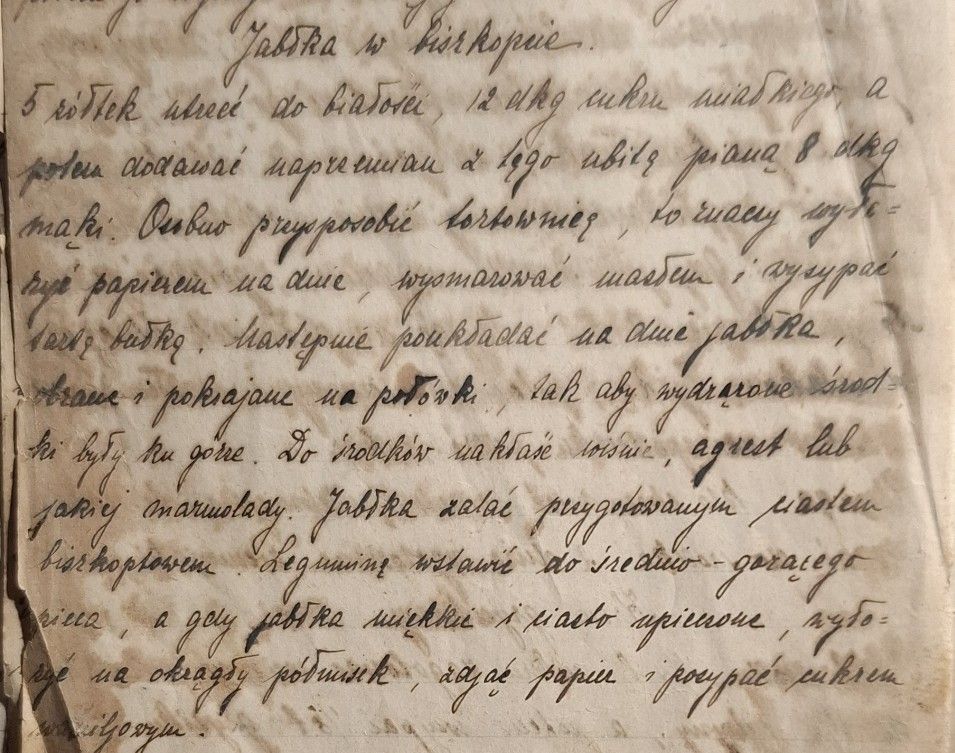 Jabłka w biszkopcie.
5 żółtek utrzeć do białości, 12 dkg cukru miałkiego, a
potem dodawać naprzemian z tęgo ubitą pianą 8 dkg
mąki. Osobno przysposobić tortownicę, to znaczy wyło=
żyć papierem na dnie, wysmarować masłem i wysypać
tartą bułką. Następnie poukładać na dnie jabłka,
obrane i pokrajane na połówki, tak aby wydrążone środ=
ki były ku górze. Do środków nakłaść wiśnie, agrest lub
jakiej marmolady. Jabłka zalać przygotowanym ciastem
biszkoptowem. Leguminę wstawić do średnio-gorącego
pieca, a gdy jabłka miękkie i ciasto upieczone, wyło=
żyć na okrągły półmisek, zdjąć papier i posypać cukrem
waniljowym.